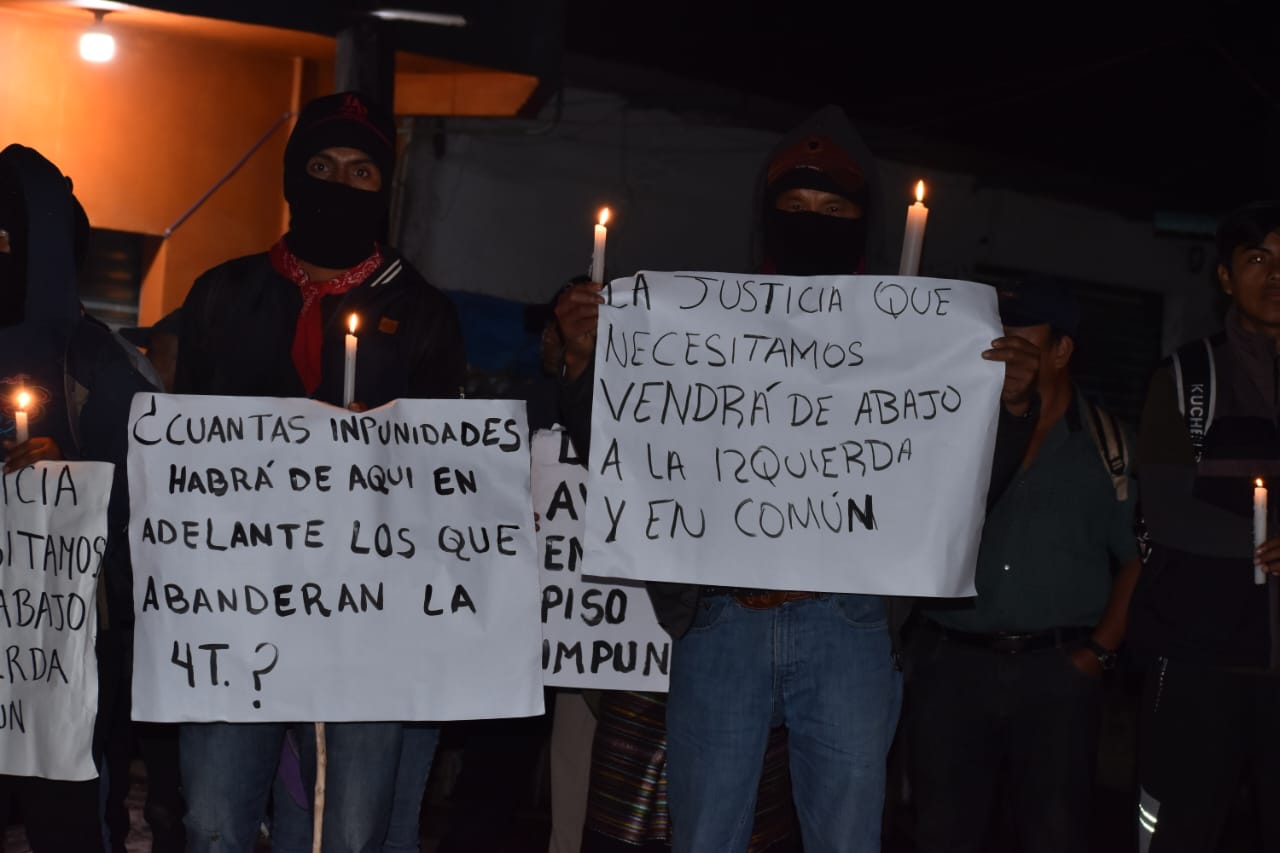 ¿CUANTAS INPUNIDADES
HABRÁ DE AQUI EN
ADELANTE LOS QUE
ABANDERAN LA
4T.?
LA JUSTICIA QUE
NECESITAMOS
VENDRÁ DE ABAJO
A LA IZQUIERDA
Y EN COMÚN
ABAJO
EN
PISO
IMPUN
KUCHE